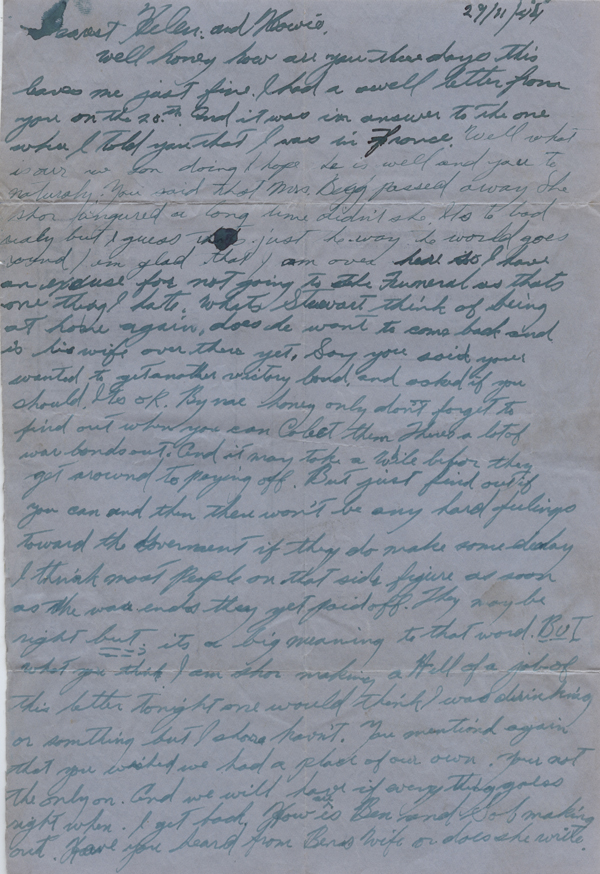 29/11/44
Dearest Helen. and Howie,
Well honey how are you these days this
leaves me just fine. I had a swell letter from
you on the 20.th and it was in answer to the one
when I told you that I was in France. Well what
is our we son doing I hope he is well and you to
naturaly. You said that Mrs. Begg passed away She
shor lingured a long time didn't she. Its to bad
realy but I guess just he way he world goes
round I am glad that I am over here so I have
an excuse for not going to the Funeral as thats
one thing I hate. Whats Stewart think of being
at home again, does he want to come back and
is his wife over there yet. Say you said your
wanted to get another victory bond, and asked if you
should. Its ok. By me honey only don't forget to
find out when you can Colect them Theres a lot of
war bonds out. And it may take a wile befor they
get around to paying off. But just find out if
you can and then there won't be any hard feelings
toward the Goverment if they do make some delay
I think most People on that side figure as soon
as the war ends they get paid off. They may be
right but, its a big meaning to that word. BUT
what you think I am shor making a Hell of a job of
this letter tonight one would think I was drinking
or somthing but I shore havn't. You mentiond again
that you wished we had a place of our own. Your not
the only on. And we will have if everything goes
right when. I get back, How is Ben and making
out. Have you heard from Bens Wife or does she write.